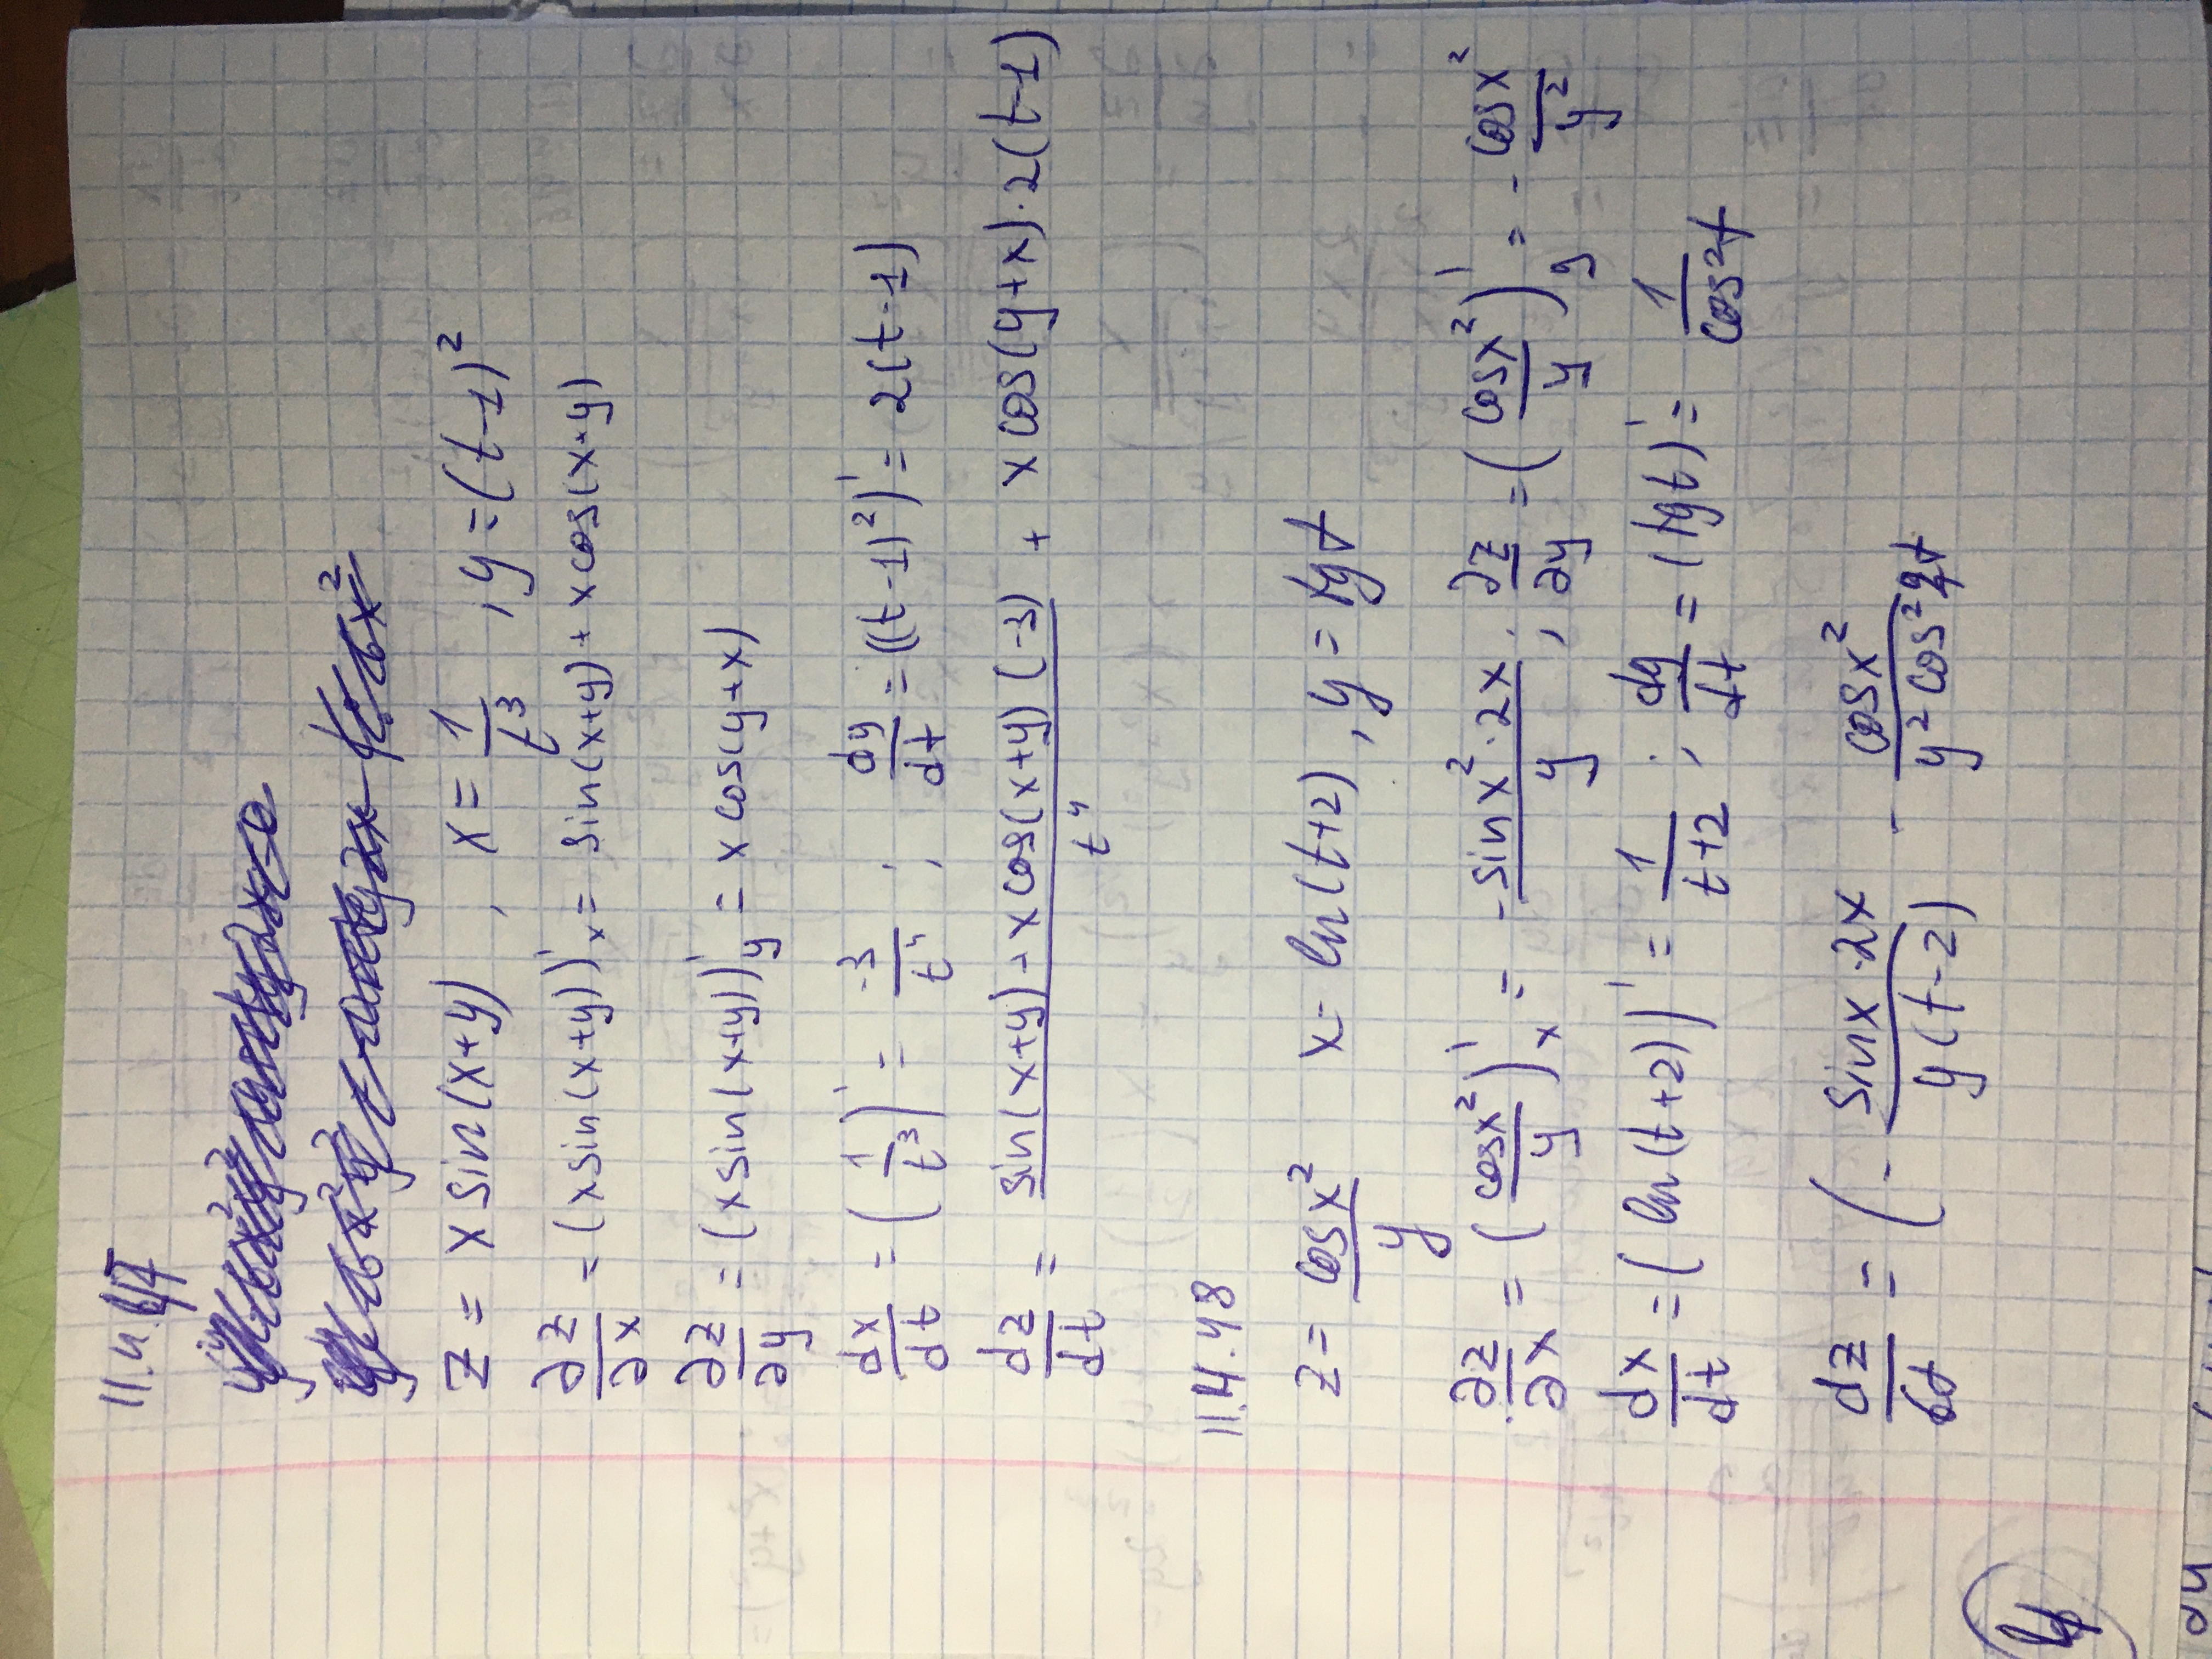 11.4.47
z = x sin(x+y) , x = 1/t³ , y = (t-1)²
∂z/∂x = (x sin(x+y))'x = sin(x+y) + x cos(x+y)
∂z/∂y = (x sin(x+y))'y = x cos(y+x)
dx/dt = (1/t³)' = -3/t⁴ ; dy/dt = ((t-1)²)' = 2(t-1)
dz/dt = sin(x+y) + x cos(x+y) (-3)/t⁴ + x cos(y+x)·2(t-1)
11.4.48
z = cosx²/y x = ln(t+2) , y = tgt
∂z/∂x = (cosx²/y)'x = -sinx²·2x/y ; ∂z/∂y = (cosx²/y)'y = -cosx²/y²
dx/dt = (ln(t+2))' = 1/(t+2) ; dy/dt = (tgt)' = 1/cos²t
dz/dt = (- sinx·2x/y(t-2) - cosx²/y² cos²t
4